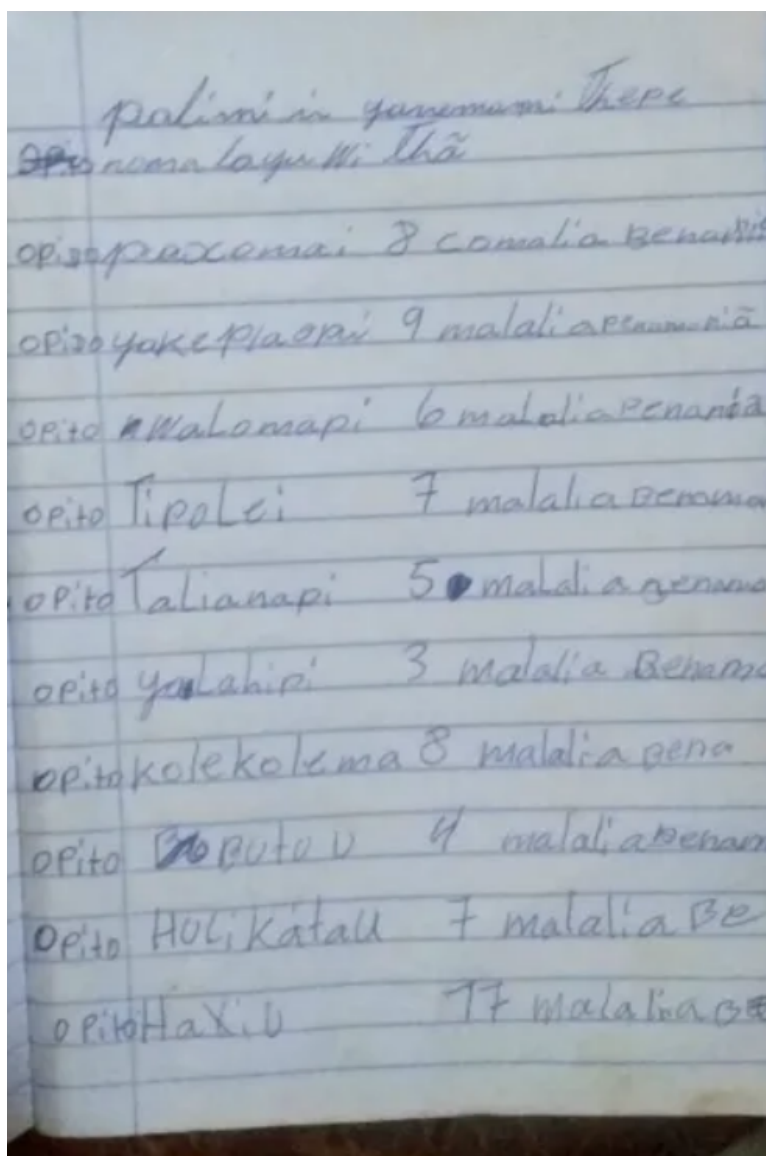 palimi in yanemami Thepe
noma layu Wi Thã
opito paxomai 8 comalia Benamo
opito yakeplaopi 9 malalia
opito Walomapi 6 malalia Benama
opito Tipolei 7 malalia Benama
opito Talianapi 5 malalia Benama
opito yalahipi 3 malalia Benamo
opito kolekolema 8 malalia Bena
opito BUTO U 4 malalia Benam
opito HOLiKataU 7 malalia Be
opito HaXiU 17 malalia Be